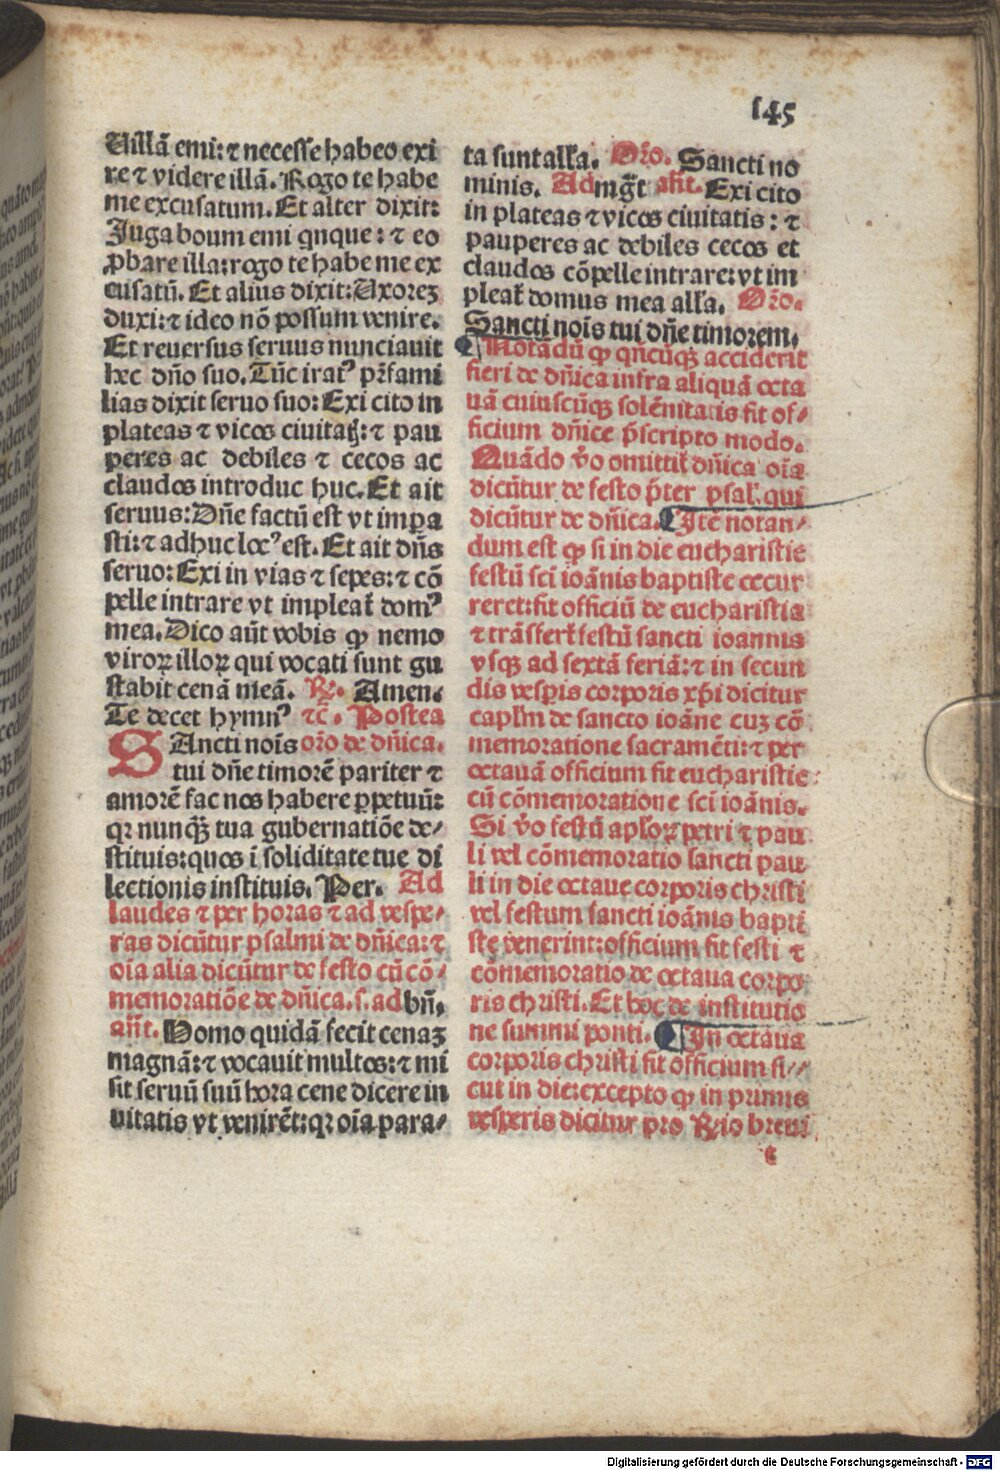 145
Uillā emi: ⁊ necesse habeo exi
re ⁊ videre illā. Rogo te habe
me excusatum. Et alter dixit:
Juga boum emi qnque: ⁊ eo
ꝓbare illa: rogo te habe me ex
cusatū. Et alius dixit: Uxoreꝫ
duxi: ⁊ ideo nō possum venire.
Et reuersus seruus nunciauit
hec dn̄o suo. Tūc iratꝰ pr̄fami
lias dixit seruo suo: Exi cito in
plateas ⁊ vicos ciuitatꝭ: ⁊ pau
peres ac debiles ⁊ cecos ac
claudos introduc huc. Et ait
seruus: Dn̄e factū est vt impa
sti: ⁊ adhuc locꝰ est. Et ait dn̄s
seruo: Exi in vias ⁊ sepes: ⁊ cō
pelle intrare vt impleat̄ domꝰ
mea. Dico aūt vobis ꝙ nemo
viroꝝ illoꝝ qui vocati sunt gu
stabit cenā meā. ℟. Amen.
Te decet hymnꝰ tc̄. Postea
SAncti nois or̄o de dn̄ica.
tui dn̄e timorē pariter ⁊
amorē fac nos habere ꝑpetuū:
qꝛ nunqꝫ̄ tua gubernatiōe de/
stituis: quos ī soliditate tue di
lectionis instituis. Per. Ad
laudes ⁊ per horas ⁊ ad vespe/
ras dicūtur psalmi de dn̄ica: ⁊
oīa alia dicūtur de festo cū cō/
memoratiōe de dn̄ica. s. ad bn̄.
an̄t. Homo quidā fecit cenaꝫ
magnā: ⁊ vocauit multos: ⁊ mi
sit seruū suū hora cene dicere in
uitatis vt venirēt: qꝛ oīa para/
ta sunt all'a. Or̄o. Sancti no
minis. Ad mgt̄ an̄t. Exi cito
in plateas ⁊ vicos ciuitatis: ⁊
pauperes ac debiles cecos et
claudos cōpelle intrare: vt im
pleat̄ domus mea all'a. Or̄o.
Sancti nois tui dn̄e timorem.
¶ Notādū ꝙ qn̄cūqꝫ acciderit
fieri de dn̄ica infra aliquā octa
uā cuiuscūqꝫ solēnitatis fit of/
ficium dn̄ice p̄scripto modo.
Quādo v̄o omittit̄ dn̄ica oīa
dicūtur de festo p̄ter psal. qui
dicūtur de dn̄ica. ¶ Itē notan/
dum est ꝙ si in die eucharistie
festū sci ioānis baptiste occur
reret: fit officiū de eucharistia
⁊ trāsfert̄ festū sancti ioannis
vsqꝫ ad sextā feriā: ⁊ in secun
dis vesꝑis corporis xp̄i dicitur
capl'm de sancto ioāne cuꝫ cō
memoratione sacramēti: ⁊ per
octauā officium fit eucharistie
cū cōmemoratione sci ioānis.
Si v̄o festū apl'oꝝ petri ⁊ pau
li vel cōmemoratio sancti pau
li in die octaue corporis christi
vel festum sancti ioānis bapti
ste venerint: officium fit festi ⁊
cōmemoratio de octaua corpo
ris christi. Et hoc de institutio
ne summi ponti. ¶ In octaua
corporis christi fit officium si//
cut in die: excepto ꝙ in primis
vesperis dicitur pro ℟io breui
t
Digitalisierung gefördert durch die Deutsche Forschungsgemeinschaft - DFG